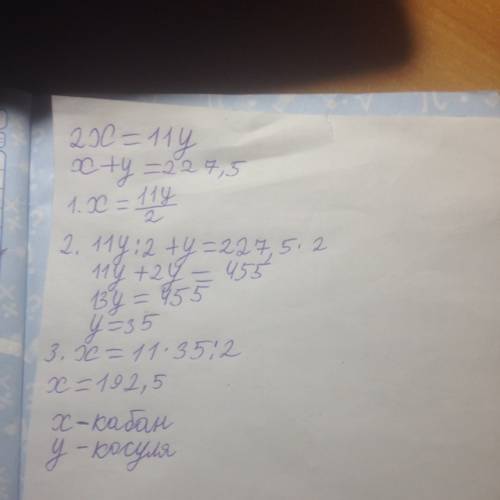 2x = 11y
x + y = 227,5
1. x = 11y/2
2. 11y:2 + y = 227,5 · 2
11y + 2y = 455
13y = 455
y = 35
3. x = 11 · 35:2
x = 192,5
x – кабан
y – косуля